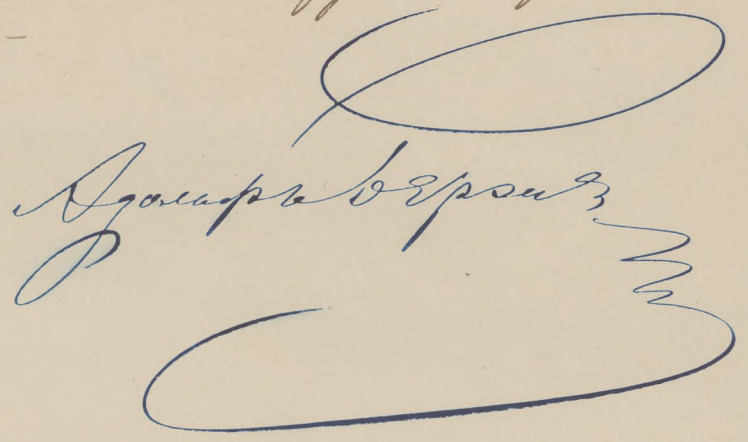 Адольфъ Берже